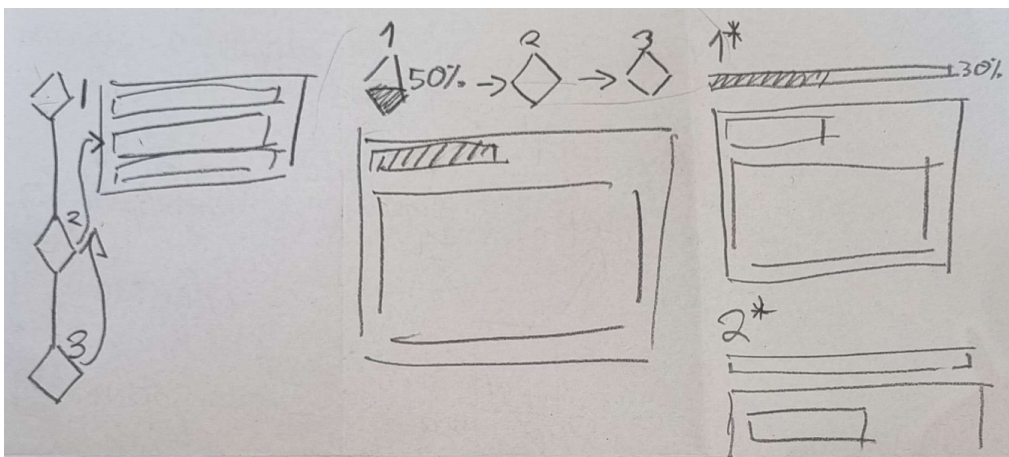 1
2
3
1
50%
2
3
1*
30%
2*